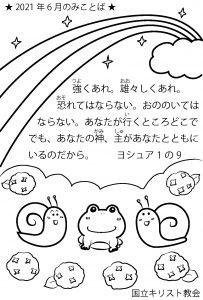 ★ 2021 年６月のみことば ★
強くあれ。雄々しくあれ。
恐れてはならない。おののいては
ならない。あなたが行くところどこで
でも、あなたの神、主があなたとともに
いるのだから。 ヨシュア１の９
国立キリスト教会